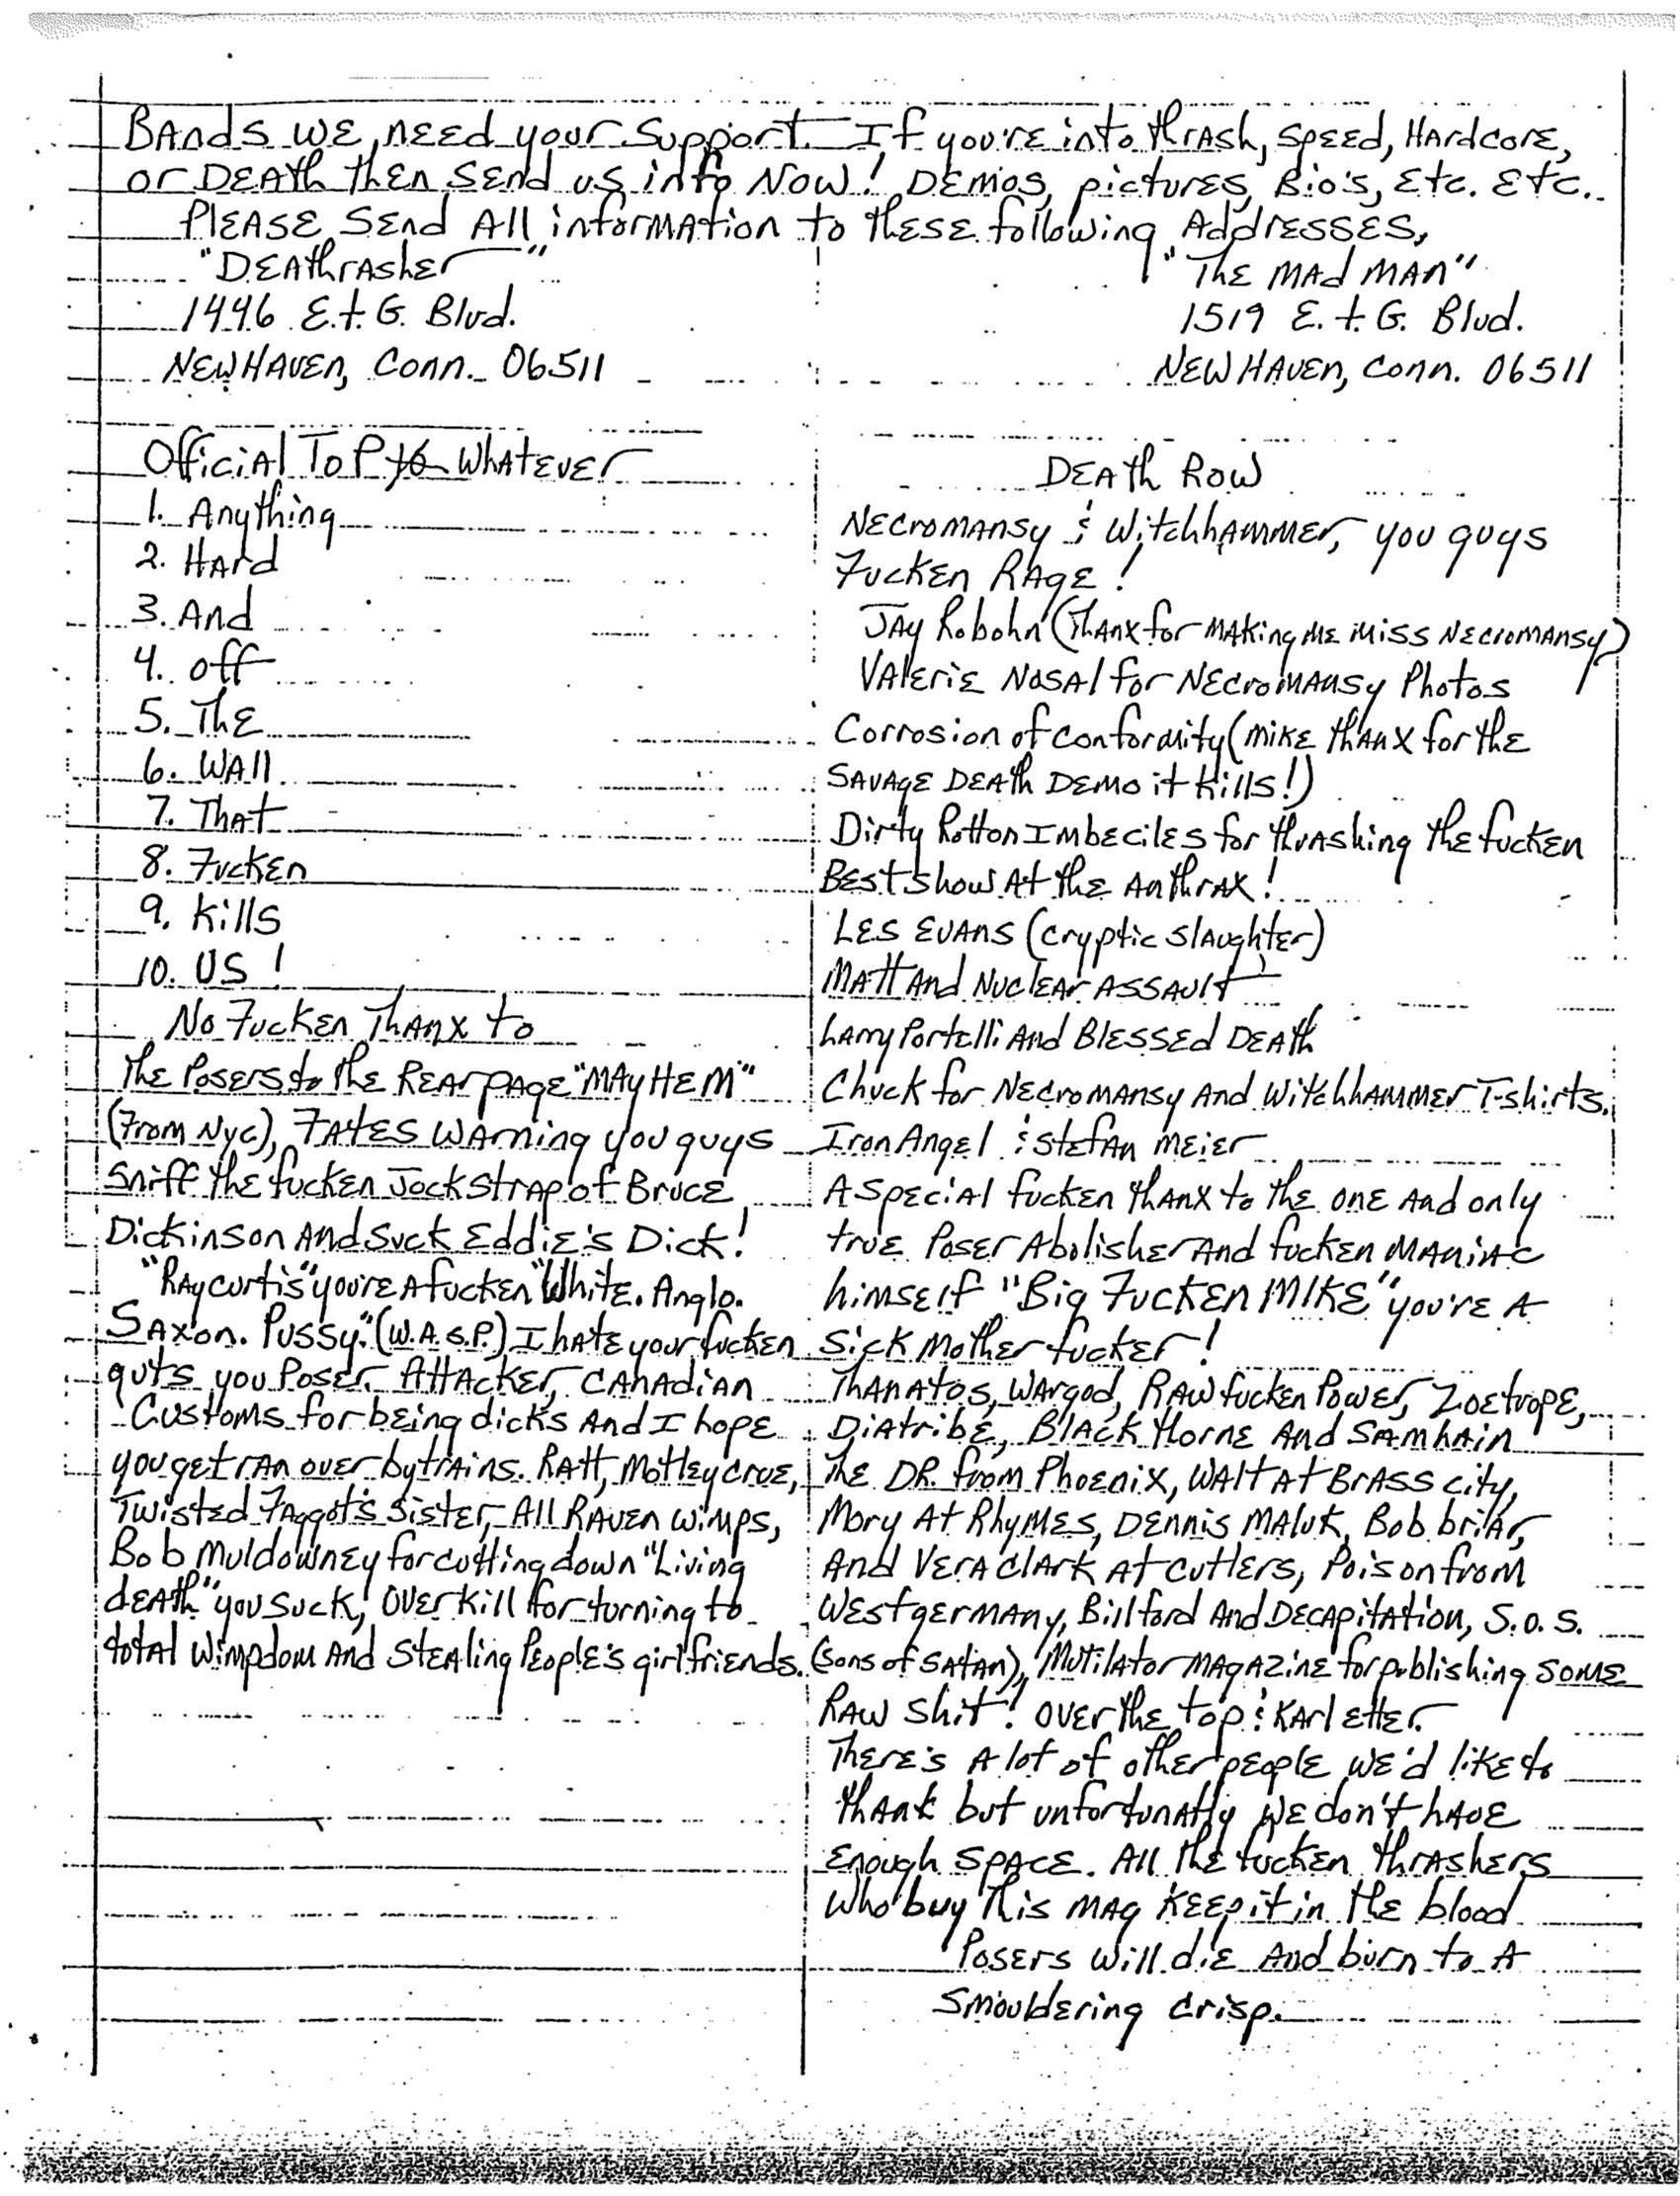 Bands we need your support. If you're into thrash, speed, Hardcore,
or Death then send us info Now! Demos, pictures, Bio's, Etc. Etc.
Please send All information to these following Addresses,
"Deathrasher"
1446 E.t. G. Blvd.
New Haven, Conn. 06511
"The Mad Man"
1519 E. t. G. Blvd.
New Haven, Conn. 06511
Official Top 10 Whatever
1. Anything
2. Hard
3. And
4. off
5. The
6. Wall
7. That
8. Fucken
9. Kills
10. US!
No Fucken Thanx to
The Posers to the Rear page "Mayhem"
(From Nyc), Fates Warning you guys
sniff the fucken Jockstrap of Bruce
Dickinson And Suck Eddie's Dick!
"Ray curtis" you're A fucken "White. Anglo.
Saxon. Pussy." (W.A.S.P.) I hate your fucken
guts you Poser. Attacker, Canadian
Customs for being dicks And I hope
you get ran over by trains. Ratt, Motley crue,
Twisted Faggot's Sister, All Raven wimps,
Bob Muldowney for cutting down "Living
death" you suck, Overkill for turning to
total Wimpdom And Stealing People's girlfriends.
Death Row
Necromansy & Witchhammer, you guys
Fucken Rage!
Jay Robohn (Thanx for making me miss Necromansy)
Valerie Nosal for Necromansy Photos
Corrosion of conformity (Mike thanx for the
Savage Death Demo it Kills!)
Dirty Rotton Imbeciles for thrashing the fucken
Best show At the Anthrax!
Les Evans (Cryptic Slaughter)
Matt And Nuclear Assault
Larry Portelli And Blessed Death
Chuck for Necromansy And Witchhammer T-shirts.
Iron Angel & Stefan Meier
A special fucken thanx to the one and only
true Poser Abolisher And fucken Maniac
himself "Big Fucken MIKE" you're A
Sick Mother fucker!
Thanatos, Wargod, Raw fucken Power, Zoetrope,
Diatribe, Black Thorne And Samhain
The DR. from Phoenix, Walt At Brass city,
Mory At Rhymes, Dennis Maluk, Bob briar,
And Vera Clark At Cutlers, Poison from
West germany, Bill ford And Decapitation, S.O.S.
(Sons of Satan), Mutilator Magazine for publishing some
Raw Shit! Over the top & Karl etter.
There's A lot of other people we'd like to
thank but unfortunatly we don't have
Enough space. All the fucken thrashers
Who buy this mag keep it in the blood
Posers will die And burn to A
Smouldering crisp.